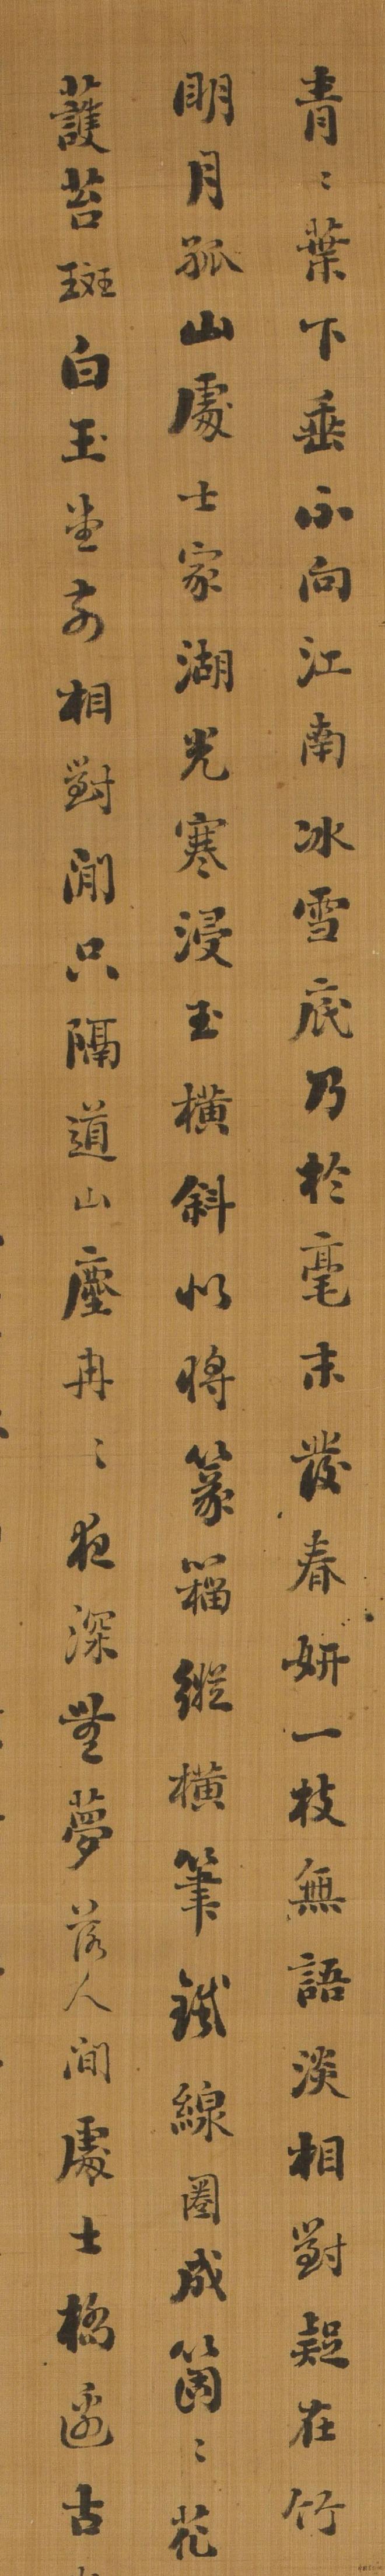 青〻葉下垂不向江南冰雪底乃於毫末發春妍一枝無語淡相對疑在竹
明月孤山處士家湖光寒浸玉橫斜似將篆籀縱橫筆鐵線圈成箇〻花
護苔斑白玉堂前相對閒只隔道山塵冉〻夜深無夢落人間處士橋邊古